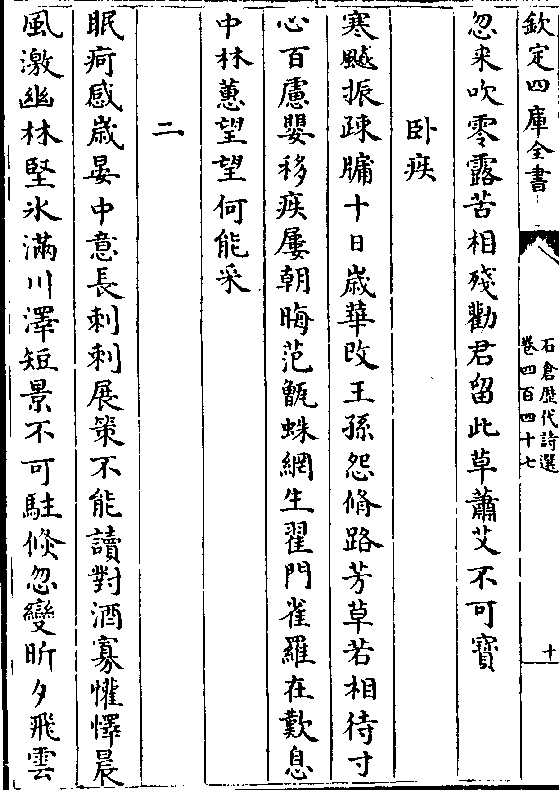 欽定四庫全書
石倉歴代詩選
卷四百四十七
十
忽来吹零露苦相殘勸君留此草蕭艾不可寳
卧疾
寒飈振疎牖十日歳華改王孫怨脩路芳草若相待寸
心百慮嬰移疾屢朝晦范甑蛛網生翟門雀羅在歎息
中林蕙望望何能采
二
眠疴感歳晏中意長刺刺展策不能讀對酒寡懽懌晨
風激幽林堅氷滿川澤短景不可駐倐忽變昕夕飛雲